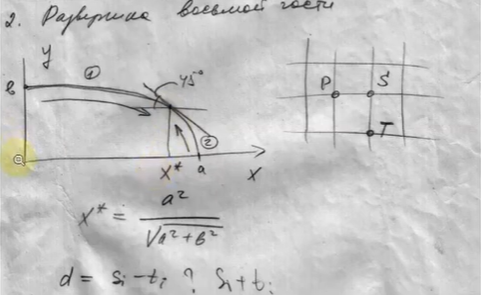 2. Развертка восьмой части
y
в
①
45°
②
x*
a
x
P
S
T
x* = a² / √a² + в²
d = si - ti ? si + ti